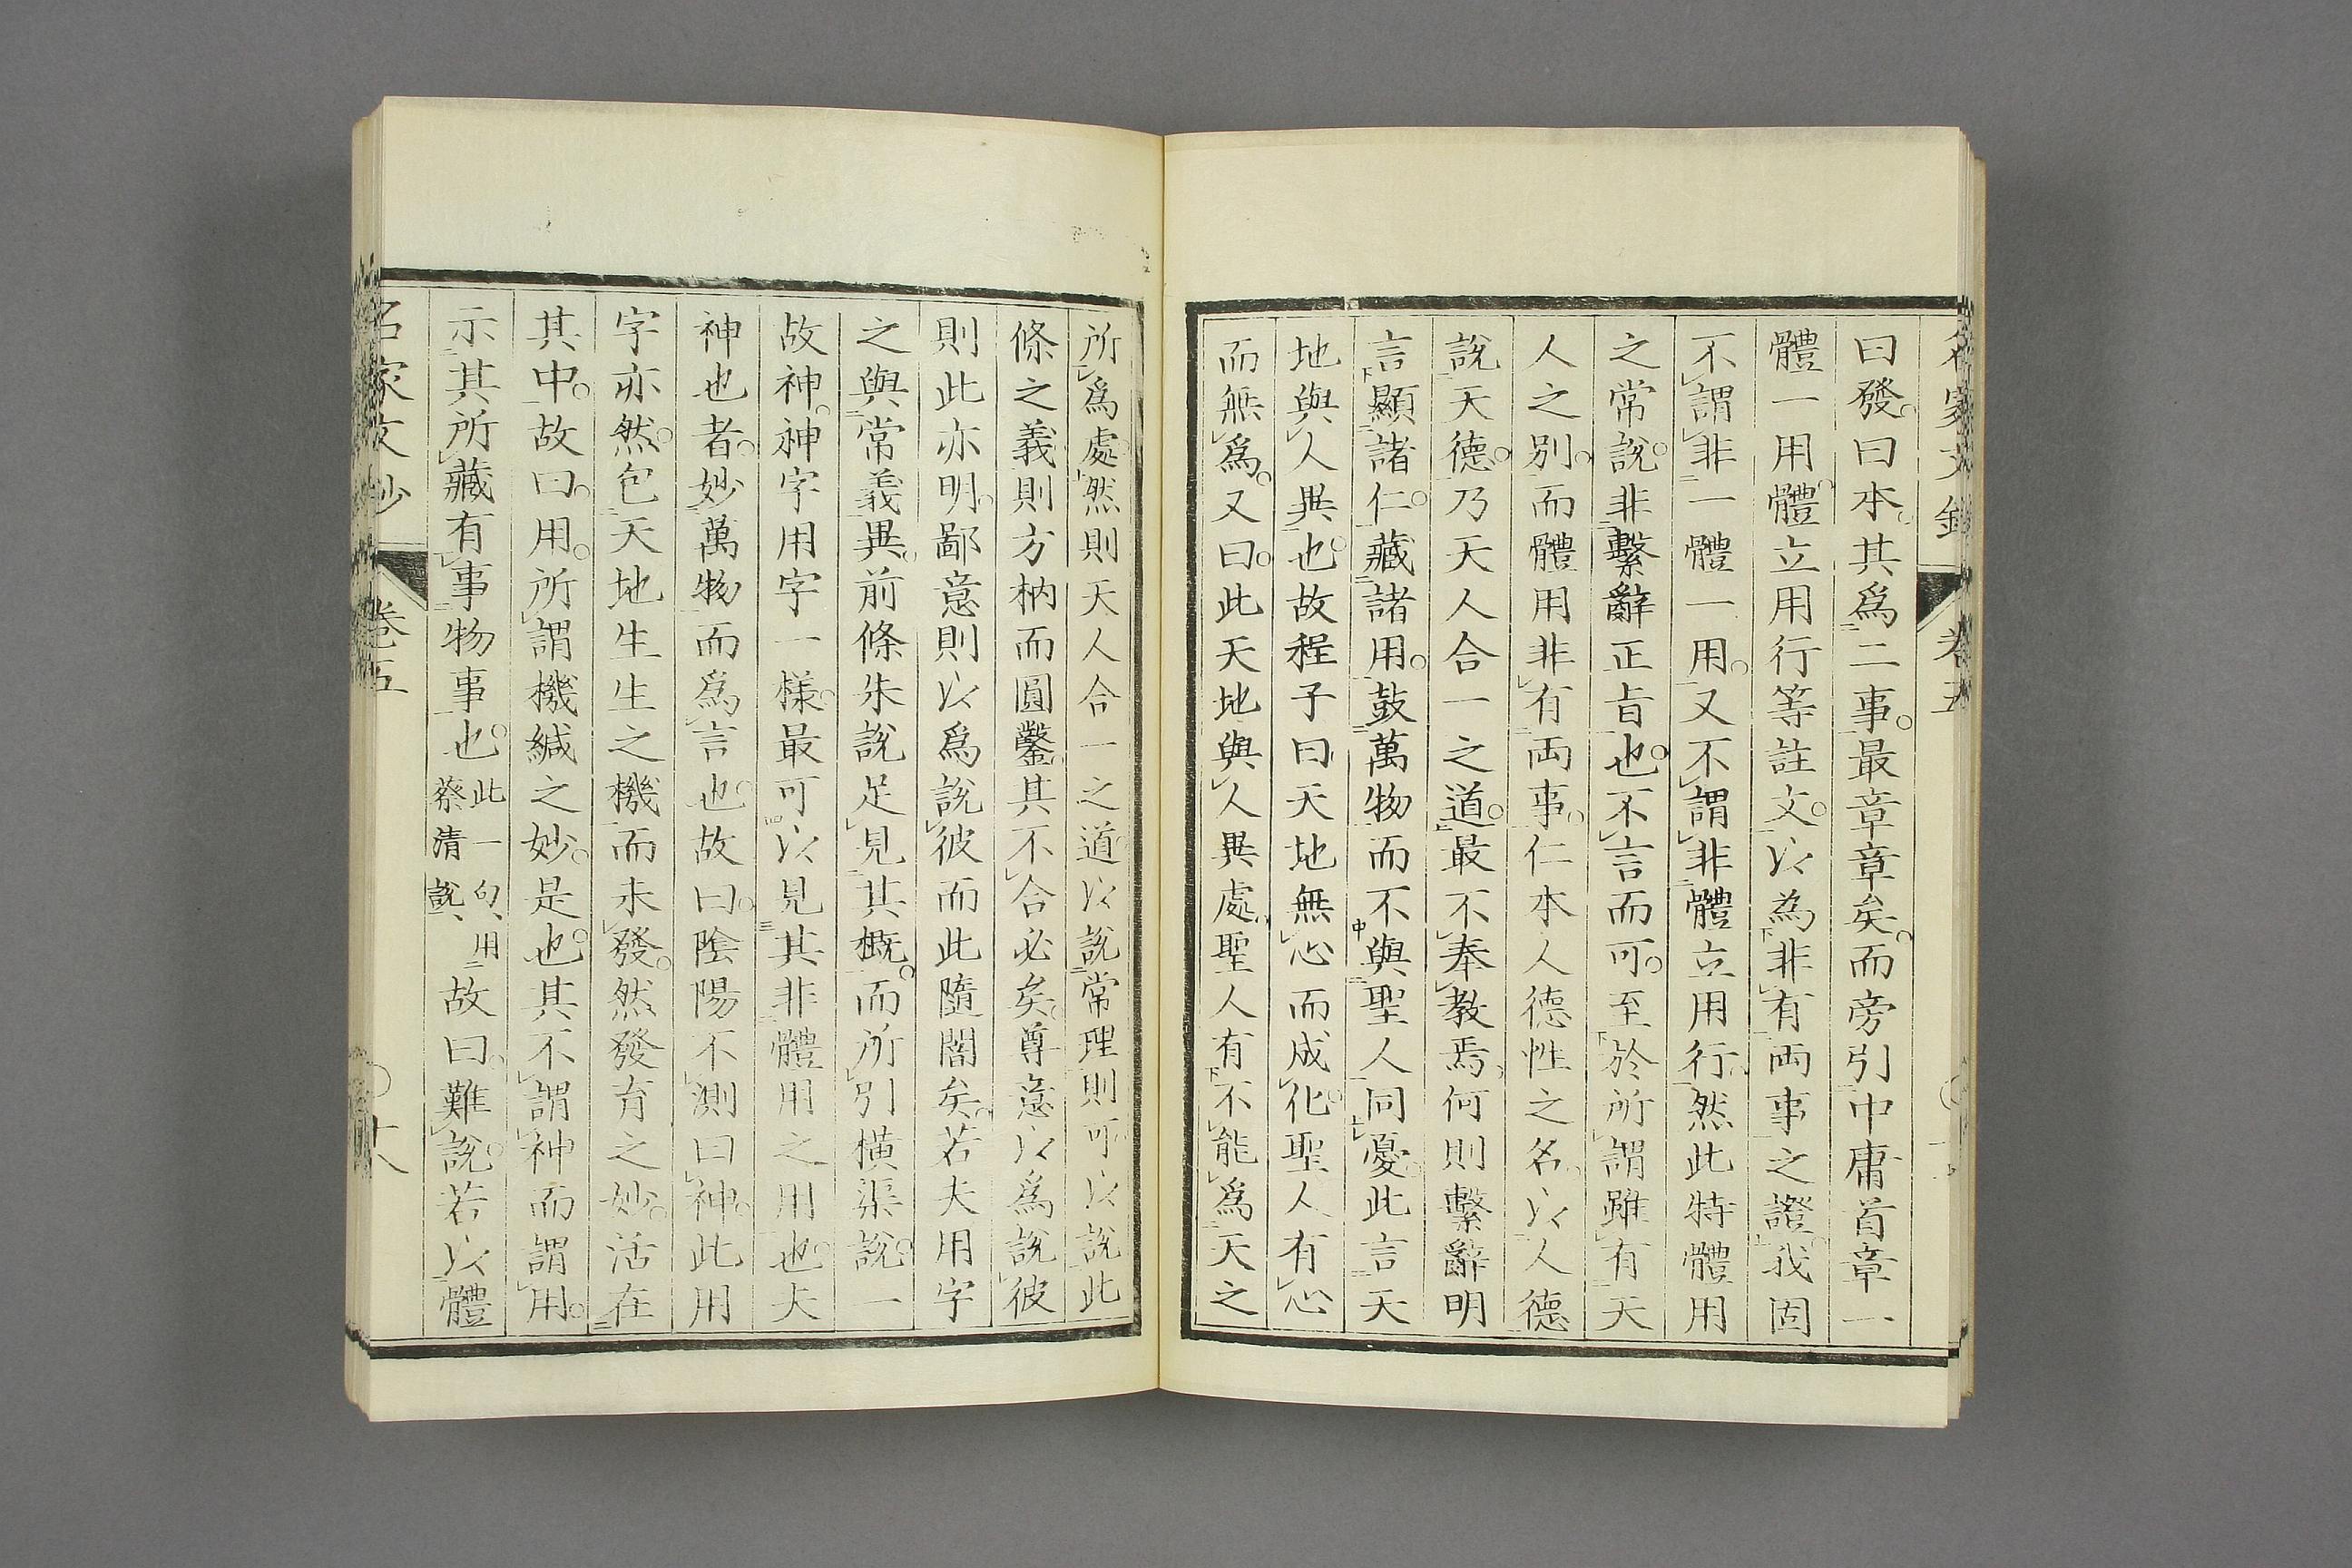 名家文鈔 卷五
曰發。曰本。其爲二事。最章章矣。而旁引中庸首章一
體一用。體立用行等註文。以為非有兩事之證。我固
不謂非一體一用。又不謂非體立用行。然此特體用
之常說。非繫辭正旨也。不言而可。至於所謂雖有天
人之別。而體用非有兩事。仁本人德性之名。以人德
說天德。乃天人合一之道。最不奉教焉。何則繫辭明
言顯諸仁。藏諸用。鼓萬物而不與聖人同憂。此言天
地與人異也。故程子曰天地無心而成化。聖人有心
而無爲。又曰。此天地與人異處。聖人有不能爲天之
所爲處。然則天人合一之道。以說常理則可。以說此
條之義則方枘而圓鑿。其不合必矣。尊意以爲說彼
則此亦明。鄙意則以爲說彼而此隨闇矣。若夫用字
之與常義異。前條朱說足見其概。而所引橫渠說。一
故神。神字用字一樣。最可以見其非體用之用也。夫
神也者。妙萬物而爲言也。故曰。陰陽不測曰神。此用
字亦然。包天地生生之機而未發。然發育之妙。活在
其中。故曰。用。所謂機緘之妙。是也。其不謂神而謂用。
示其所藏有事物事也。此一句、用蔡清說、故曰。難說。若以體
名家文鈔 卷五 十八